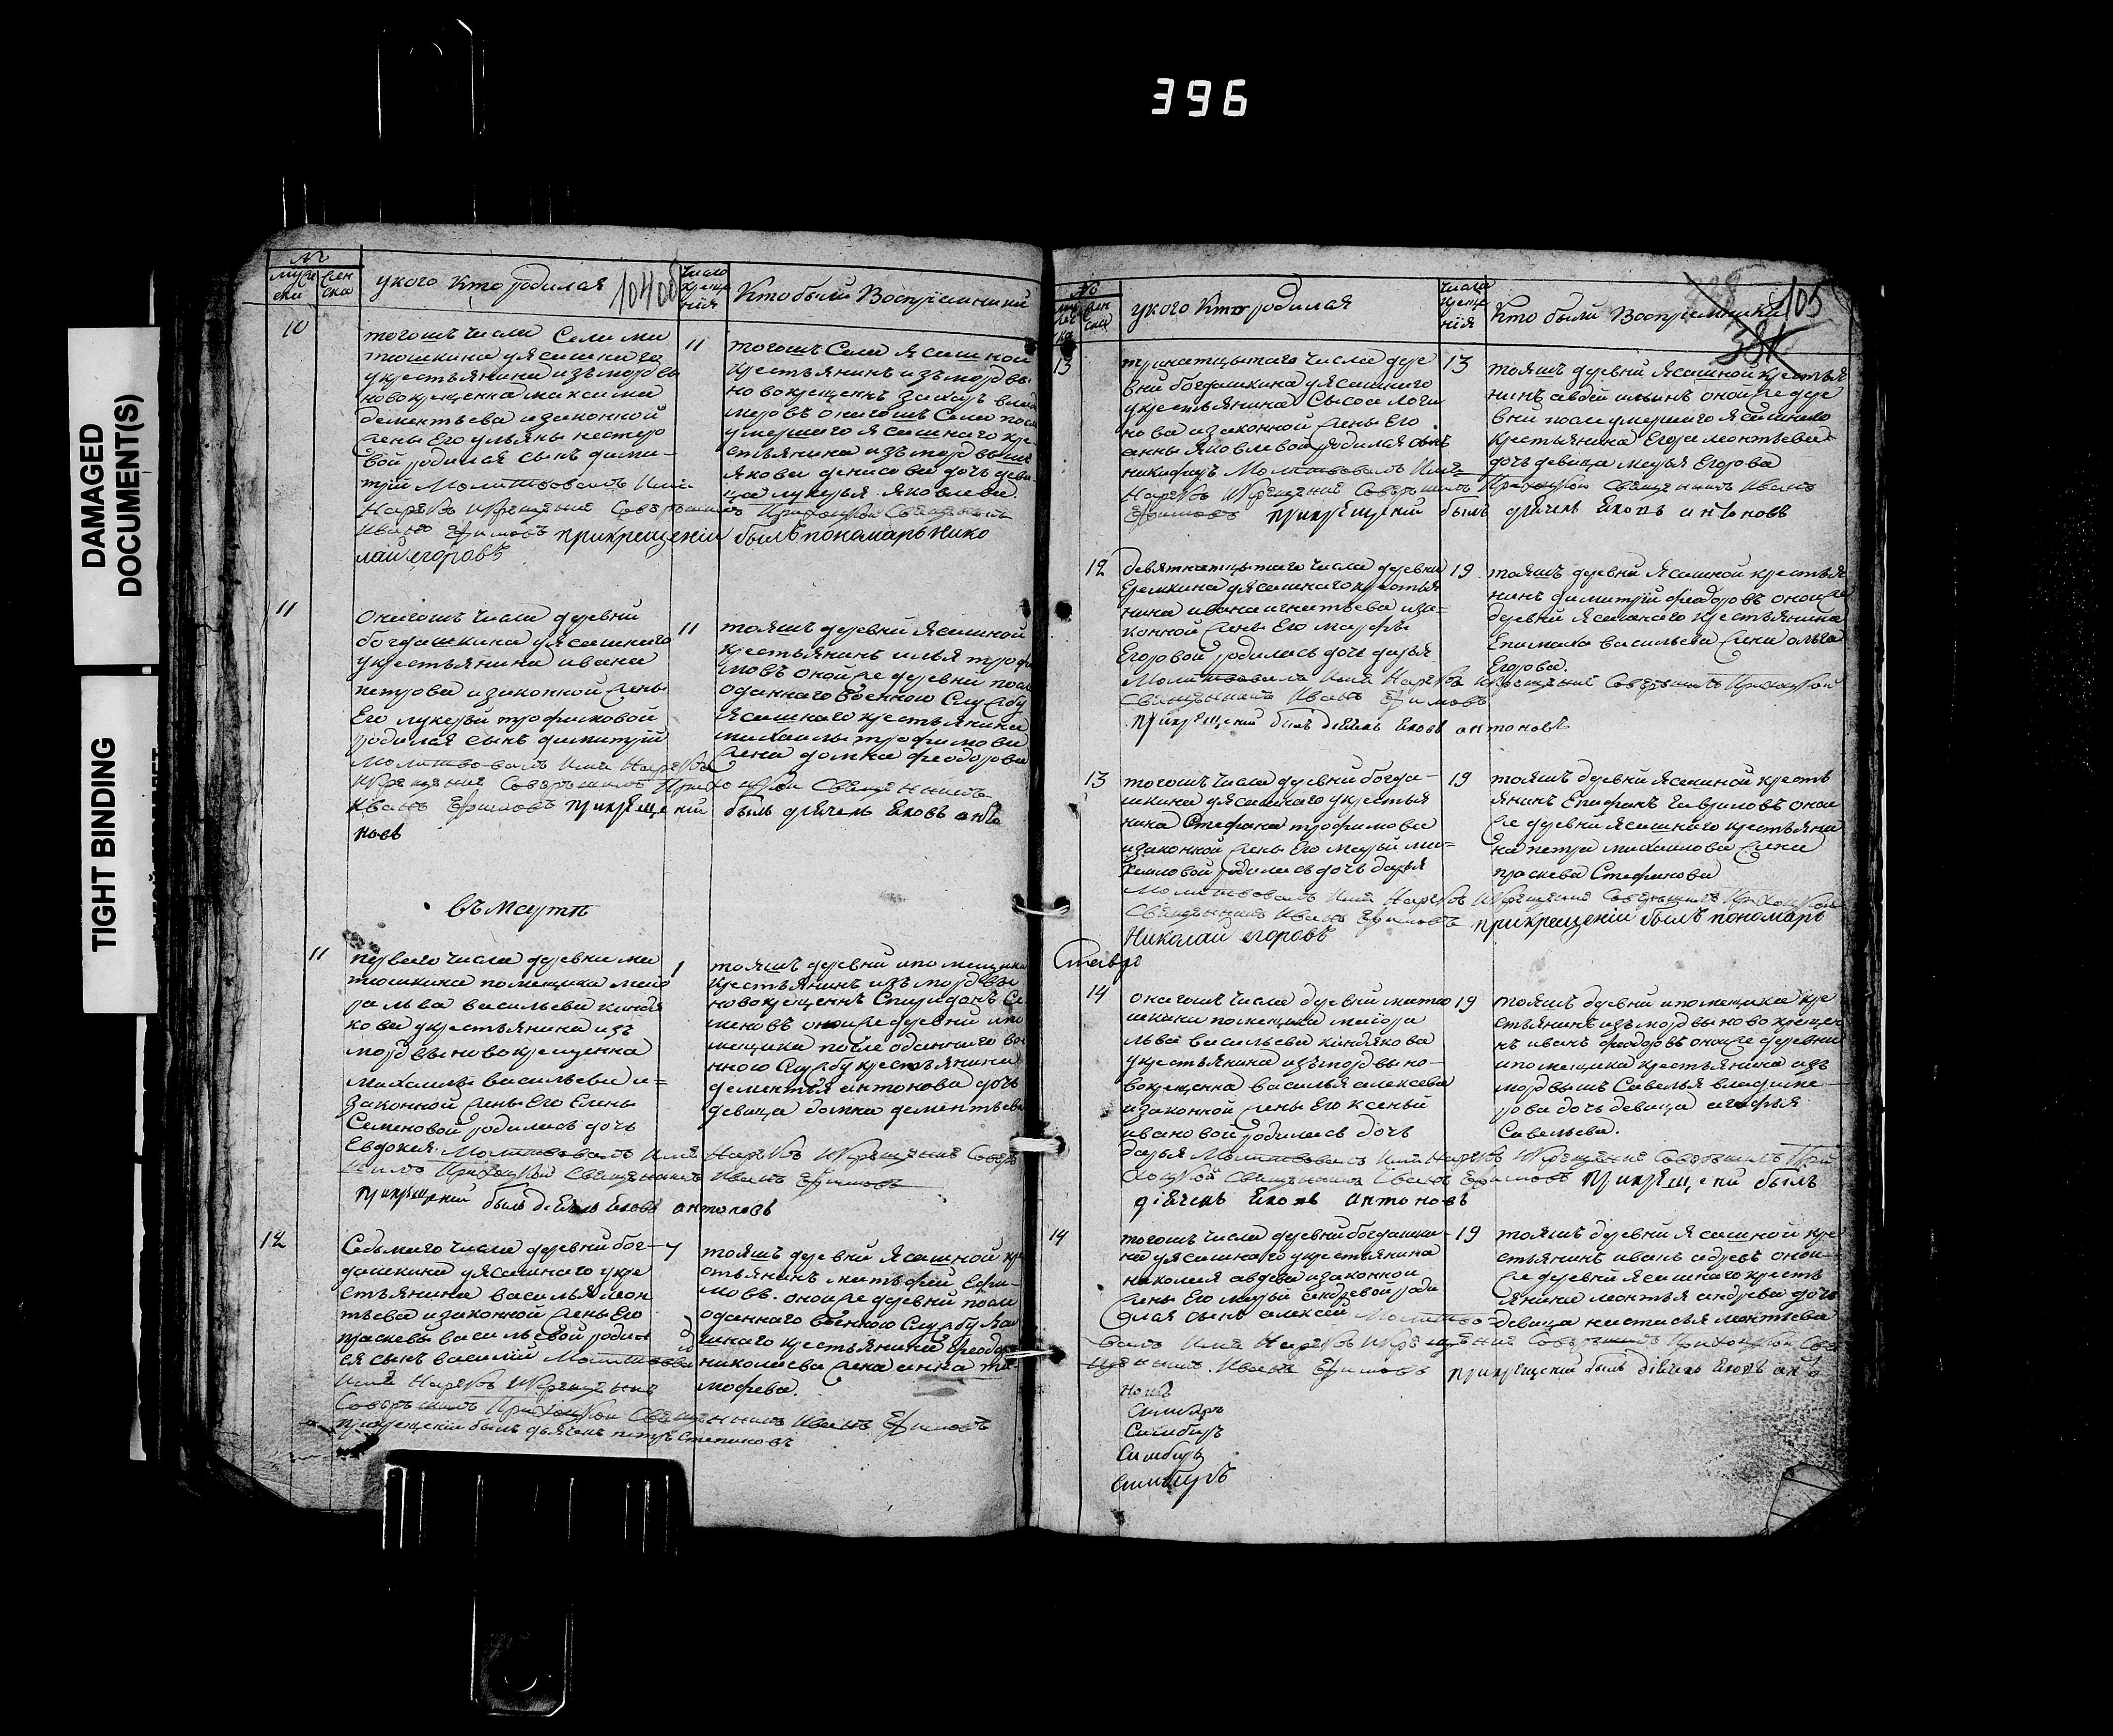 396
DAMAGED
DOCUMENT(S)
TIGHT BINDING
№
муже
ски
жен
ска
укого Кто родился
104об
число
креще
нія
Кто были Восприемники
10
тогошъ числа Села ма
тюшкина уясашнаго
укрестьянина изъ мордвы
новокрещенна максима
дементьева изаконной
жены Его ульяны несторо
вой родился сынъ дими-
трий Молитвовалъ Имя
Нарѣкъ Икрещение Совершилъ Приходской Священникъ
Иванъ Ефимовъ прикрещеніи былъ пономарь Нико
лай егоровъ
11
тогошъ Села Ясашной
крестьянинъ изъ мордвы
новокрещенъ Захаръ влади
меровъ оногошъ Села после
умершаго Ясашнаго кре
стьянина изъ мордвы
Якова денисова дочь деви
ца лукерья Яковлева
11
Оногошъ числа деревни
богдашкина уясашнаго
укрестьянина ивана
петрова изаконной жены
Его лукерьи трофимовой
родился сынъ димитрий
Молитвовалъ Имя Нарѣкъ
Икрещение Совершилъ Приходской Священникъ
Иванъ Ефимовъ прикрещеніи былъ дьячекъ Яковъ анто
новъ
11
тояшъ деревни Ясашной
крестьянинъ илья трофи
мовъ оной же деревни после
отданнаго военною Службу
Ясашнаго крестьянина
михаилы трофимова
жена домна феодорова
въ Мартѣ
11
перваго числа деревни ма
тюшкина помещика маио
ра льва васильева киндя
кова укрестьянина изъ
мордвы новокрещенна
михаилы васильева и=
законной жены Его Елены
Семеновой родилась дочь
Евдокия. Молитвовалъ Имя Нарѣкъ Икрещение Совер
шилъ Приходской Священникъ Иванъ Ефимовъ
прикрещеніи былъ дьячекъ Яковъ антоновъ
1
тояшъ деревни ипомещика
крестьянинъ изъ мордвы
новокрещенъ Спиридонъ Се
меновъ оной же деревни ипо
мещика после отданнаго во
нною Службу крестьянина
дементья антонова дочь
девица домна дементьева
12
Седьмаго числа деревни бог-
дашкина уясашнаго укре
стьянина василья леон
тьева изаконной жены Его
прасковьи васильевой родил
ся сынъ василий Молитвовалъ
Имя Нарѣкъ Икрещение
Совершилъ Приходской Священникъ Иванъ Ефимовъ
прикрещеніи былъ дьячекъ петръ Степановъ
7
тояшъ деревни Ясашной кре
стьянинъ матфей Ефи-
мовъ. оной же деревни после
отданнаго военною Службу Яса
шнаго крестьянина феодора
николаева жена анна ти
мофева.
№
муже
ска
жен
ска
укого Кто родился
числа
креще
нія
Кто были Восприемники
105
381
13
тринатцытаго числа дере
вни богдашкина уясашнаго
укрестьянина Сысоа логи
нова изаконной жены Его
анны Яковлевой родился сынъ
никифоръ Молитвовалъ Имя
Нарѣкъ Икрещение Совершилъ Приходской Священникъ Иванъ
Ефимовъ прикрещеніи былъ дьячекъ Яковъ антоновъ
13
тояшъ деревни Ясашной крестья
нинъ авдей ильинъ оной же дере
вни после умершаго Ясашнаго
крестьянина Егора леонтьева
дочь девица марья Егорова
12
девятнатцытаго числа деревни
Еремкина уясашнаго укрестья
нина ивана игнатьева иза=
конной жены Его марфы
Егоровой родилась дочь дарья
Молитвовалъ Имя Нарѣкъ Икрещение Совершилъ Приходской
Священникъ Иванъ Ефимовъ
прикрещеніи былъ дьячекъ Яковъ антоновъ
19
тояшъ деревни Ясашной крестья
нинъ димитрий феодоровъ оной же
деревни Ясашнаго крестьянина
Епимаха васильева жена ольга
Егорова.
13
тогошъ числа деревни богда-
шкина уясашнаго укрестья
нина Стефана трофимова
изаконной жены Его марьи ми=
хаиловой родилась дочь дарья
Молитвовалъ Имя Нарѣкъ Икрещение Совершилъ Приходской
Священникъ Иванъ Ефимовъ прикрещеніи былъ пономарь
Николай егоровъ
19
тояшъ деревни Ясашной кресть
янинъ Епифанъ гавриловъ оной
же деревни Ясашнаго крестьяни
на петра михаилова жена
праскева Стефанова
14
оногошъ числа деревни матю
шкина помещика маиора
льва васильева киндякова
укрестьянина изъ мордвы но-
вокрещенна василья алексева
изаконной жены Его ксеньи
ивановой родилась дочь
дарья Молитвовалъ Имя Нарѣкъ Икрещение Совершилъ При
ходской Священникъ Иванъ Ефимовъ прикрещеніи былъ
дьячекъ Яковъ антоновъ
19
тояшъ деревни ипомещика кре
стьянинъ изъ мордвы новокрещен
нъ иванъ феодоровъ оной же деревни
ипомещика крестьянина изъ
мордвы Савелья владиме
рова дочь девица агафья
Савельева.
14
тогошъ числа деревни богдашки-
на уясашнаго укрестьянина
николая авдева изаконной
жены Его марьи андревой роди
лся сынъ алексей Молитво-
валъ Имя Нарѣкъ Икрещение Совершилъ Приходской Свя
щенникъ Иванъ Ефимовъ прикрещеніи былъ дьячекъ Яковъ анто
новъ
19
тояшъ деревни Ясашной кре
стьянинъ иванъ андревъ оной
же деревни Ясашнаго кресть
янина леонтья андрева дочь
девица настасья леонтьева
Симбиръ
Симбиръ
Симбиръ